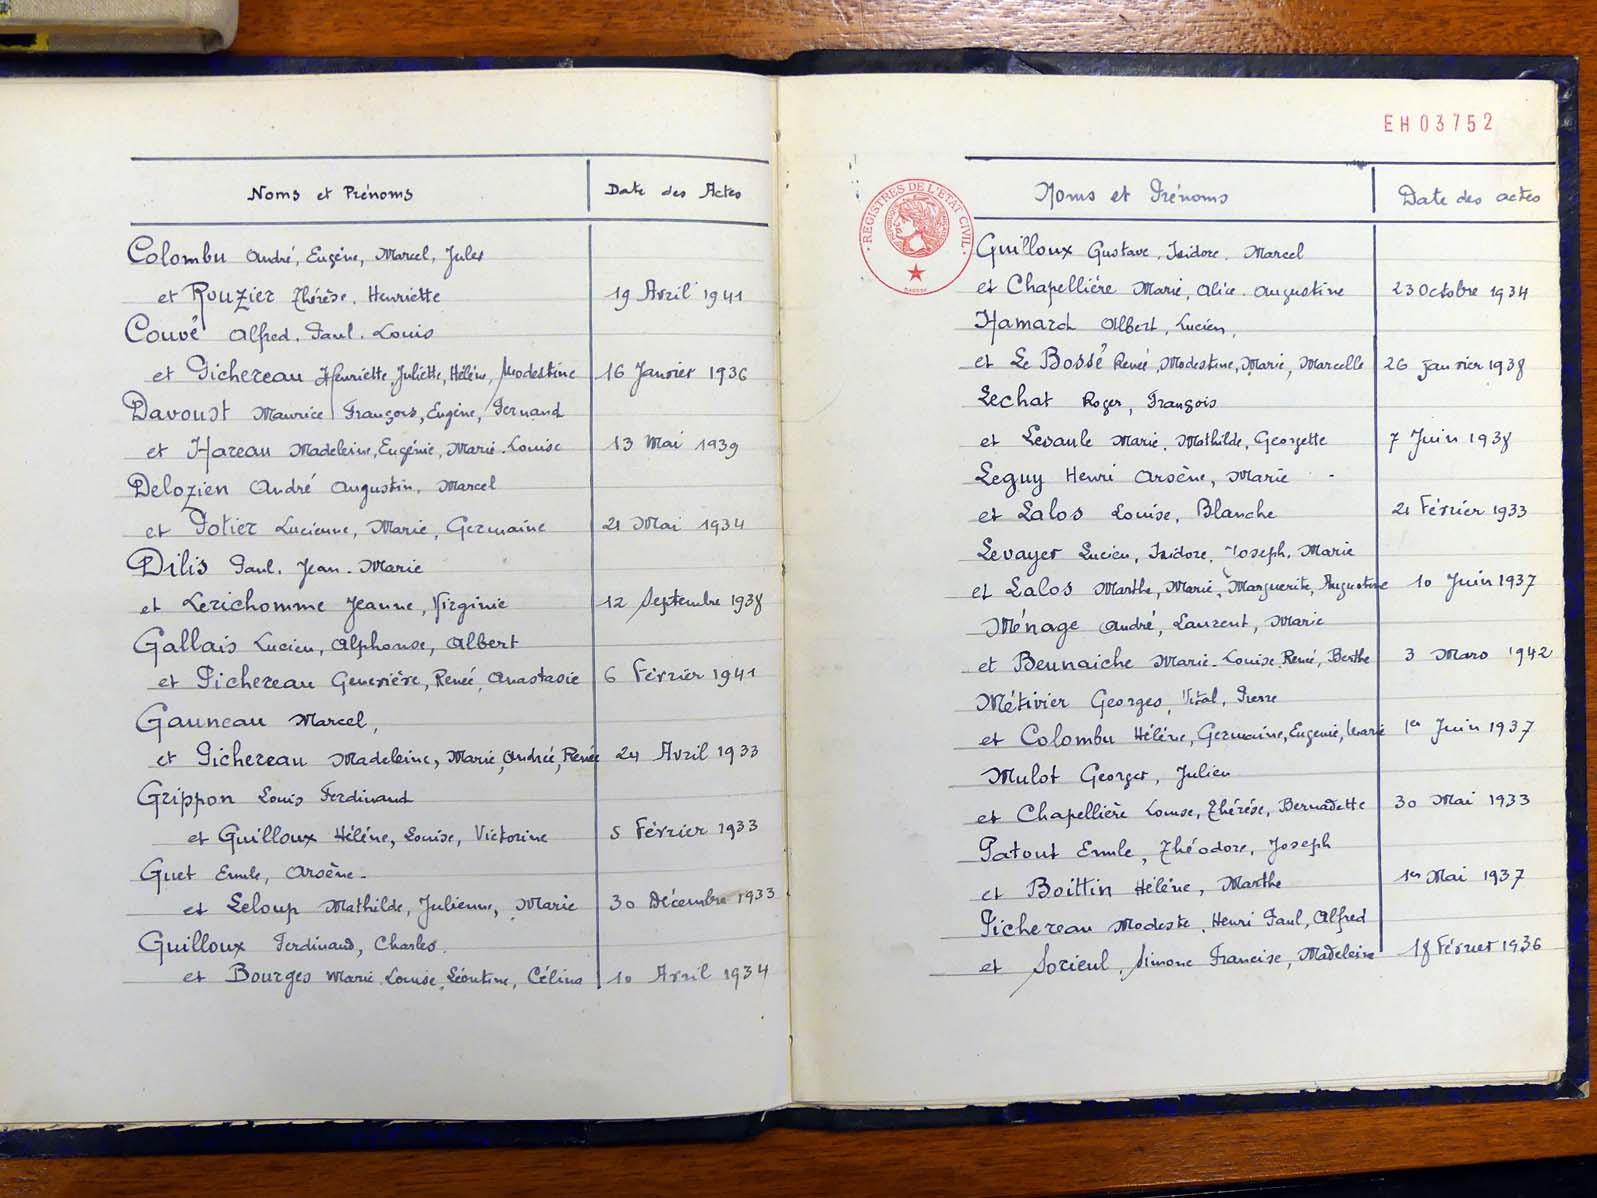 Noms et Prénoms Date des Actes
Colombu André, Eugène, Marcel, Jules
et Rouzier Thérèse. Henriette 19 Avril 1941
Couvé Alfred. Paul. Louis
et Pichereau Henriette, Juliette, Hélène, Modestine 16 Janvier 1936
Davoust Maurice François, Eugène, Fernand
et Hareau Madeleine, Eugénie, Marie-Louise 13 Mai 1939
Delozien André Augustin. Marcel
et Potier Lucienne, Marie, Germaine 21 Mai 1934
Dilis Paul. Jean. Marie
et Lerichomme Jeanne, Virginie 12 Septembre 1938
Gallais Lucien, Alphonse, Albert
et Pichereau Geneviève, Renée, Anastasie 6 Février 1941
Gauneau Marcel,
et Pichereau Madeleine, Marie, Andrée, Renée 24 Avril 1933
Grippon Louis Ferdinand
et Guilloux Hélène, Louise, Victorine 5 Février 1933
Guet Emile, Arsène.
et Leloup Mathilde, Julienne, Marie 30 Décembre 1933
Guilloux Ferdinand, Charles.
et Bourges Marie. Louise, Léontine, Célina 10 Avril 1934
EH03752
REGISTRES DE L'ETAT CIVIL
Noms et Prénoms Date des actes
Guilloux Gustave. Isidore. Marcel
et Chapellière Marie, Alice. Augustine 23 Octobre 1934
Hamard Albert, Lucien,
et Le Bossé Renée, Modestine, Marie, Marcelle 26 janvier 1938
Lechat Roger, François
et Lesaule Marie, Mathilde, Georgette 7 Juin 1938
Leguy Henri Arsène, Marie -
et Lalos Louise, Blanche 21 Février 1933
Levayer Lucien, Isidore, Joseph. Marie
et Lalos Marthe, Marie, Marguerite, Augustine 10 Juin 1937
Ménage André, Laurent, Marie
et Beunaiche Marie-Louise Renée, Berthe 3 Mars 1942
Métivier Georges, Vital, Pierre
et Colombu Hélène, Germaine, Eugenie, Marie 1er Juin 1937
Mulot Georges, Julien
et Chapellière Louise, Thérèse, Bernadette 30 Mai 1933
Patout Emile, Théodore, Joseph
et Boittin Hélène, Marthe 1er Mai 1937
Pichereau Modeste, Henri Paul, Alfred
et Sorieul, Simone Francise, Madeleine 18 Février 1936